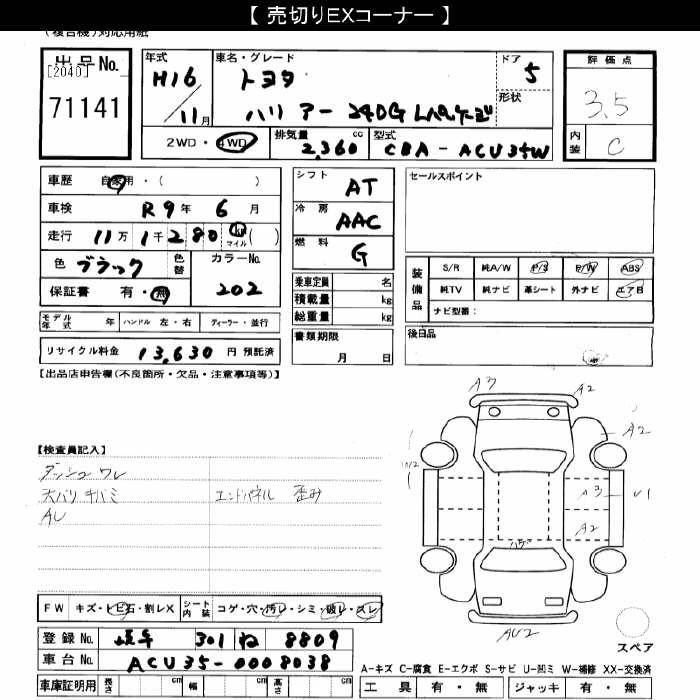 【 売切りEXコーナー 】
(複合機)対応用紙
出品No.
[2040]
71141
年式 H16/11月
車名・グレード トヨタ
ハリアー 240G Lパッケージ
ドア 5
形状
2WD・4WD
排気量 2,360 cc
型式 CBA-ACU35W
評価点
3.5
内装 C
車歴 自家用・( )
車検 R9年 6月
走行 11万 1千 280 km マイル ( )
色 ブラック 色替
カラーNo. 202
保証書 有・無
モデル年式 年 ハンドル 左・右 ディーラー・並行
リサイクル料金 13,630 円 預託済
シフト AT
冷房 AAC
燃料 G
乗車定員 名
積載量 kg
総重量 kg
書類期限
月 日
セールスポイント
装備品
S/R 純A/W P/S P/W ABS
純TV 純ナビ 革シート 外ナビ エアB
ナビ型番:
後日品
【出品店申告欄(不良箇所・欠品・注意事項等)】
【検査員記入】
ダッシュ ワレ
天バリ キバミ エンドパネル 歪み
AU
A3 A2
A2
A3 U1
A2
AU2
スペア
FW キズ・トビ石・割レX
シート内装 コゲ・穴・汚レ・シミ・破レ・スレ
登録No. 岐阜 301 ね 8809
車台No. ACU35-0008038
車庫証明用 長さ cm 幅 cm 高さ cm
A-キズ C-腐食 E-エクボ S-サビ U-凹ミ W-補修 XX-交換済
工具 有・無 ジャッキ 有・無